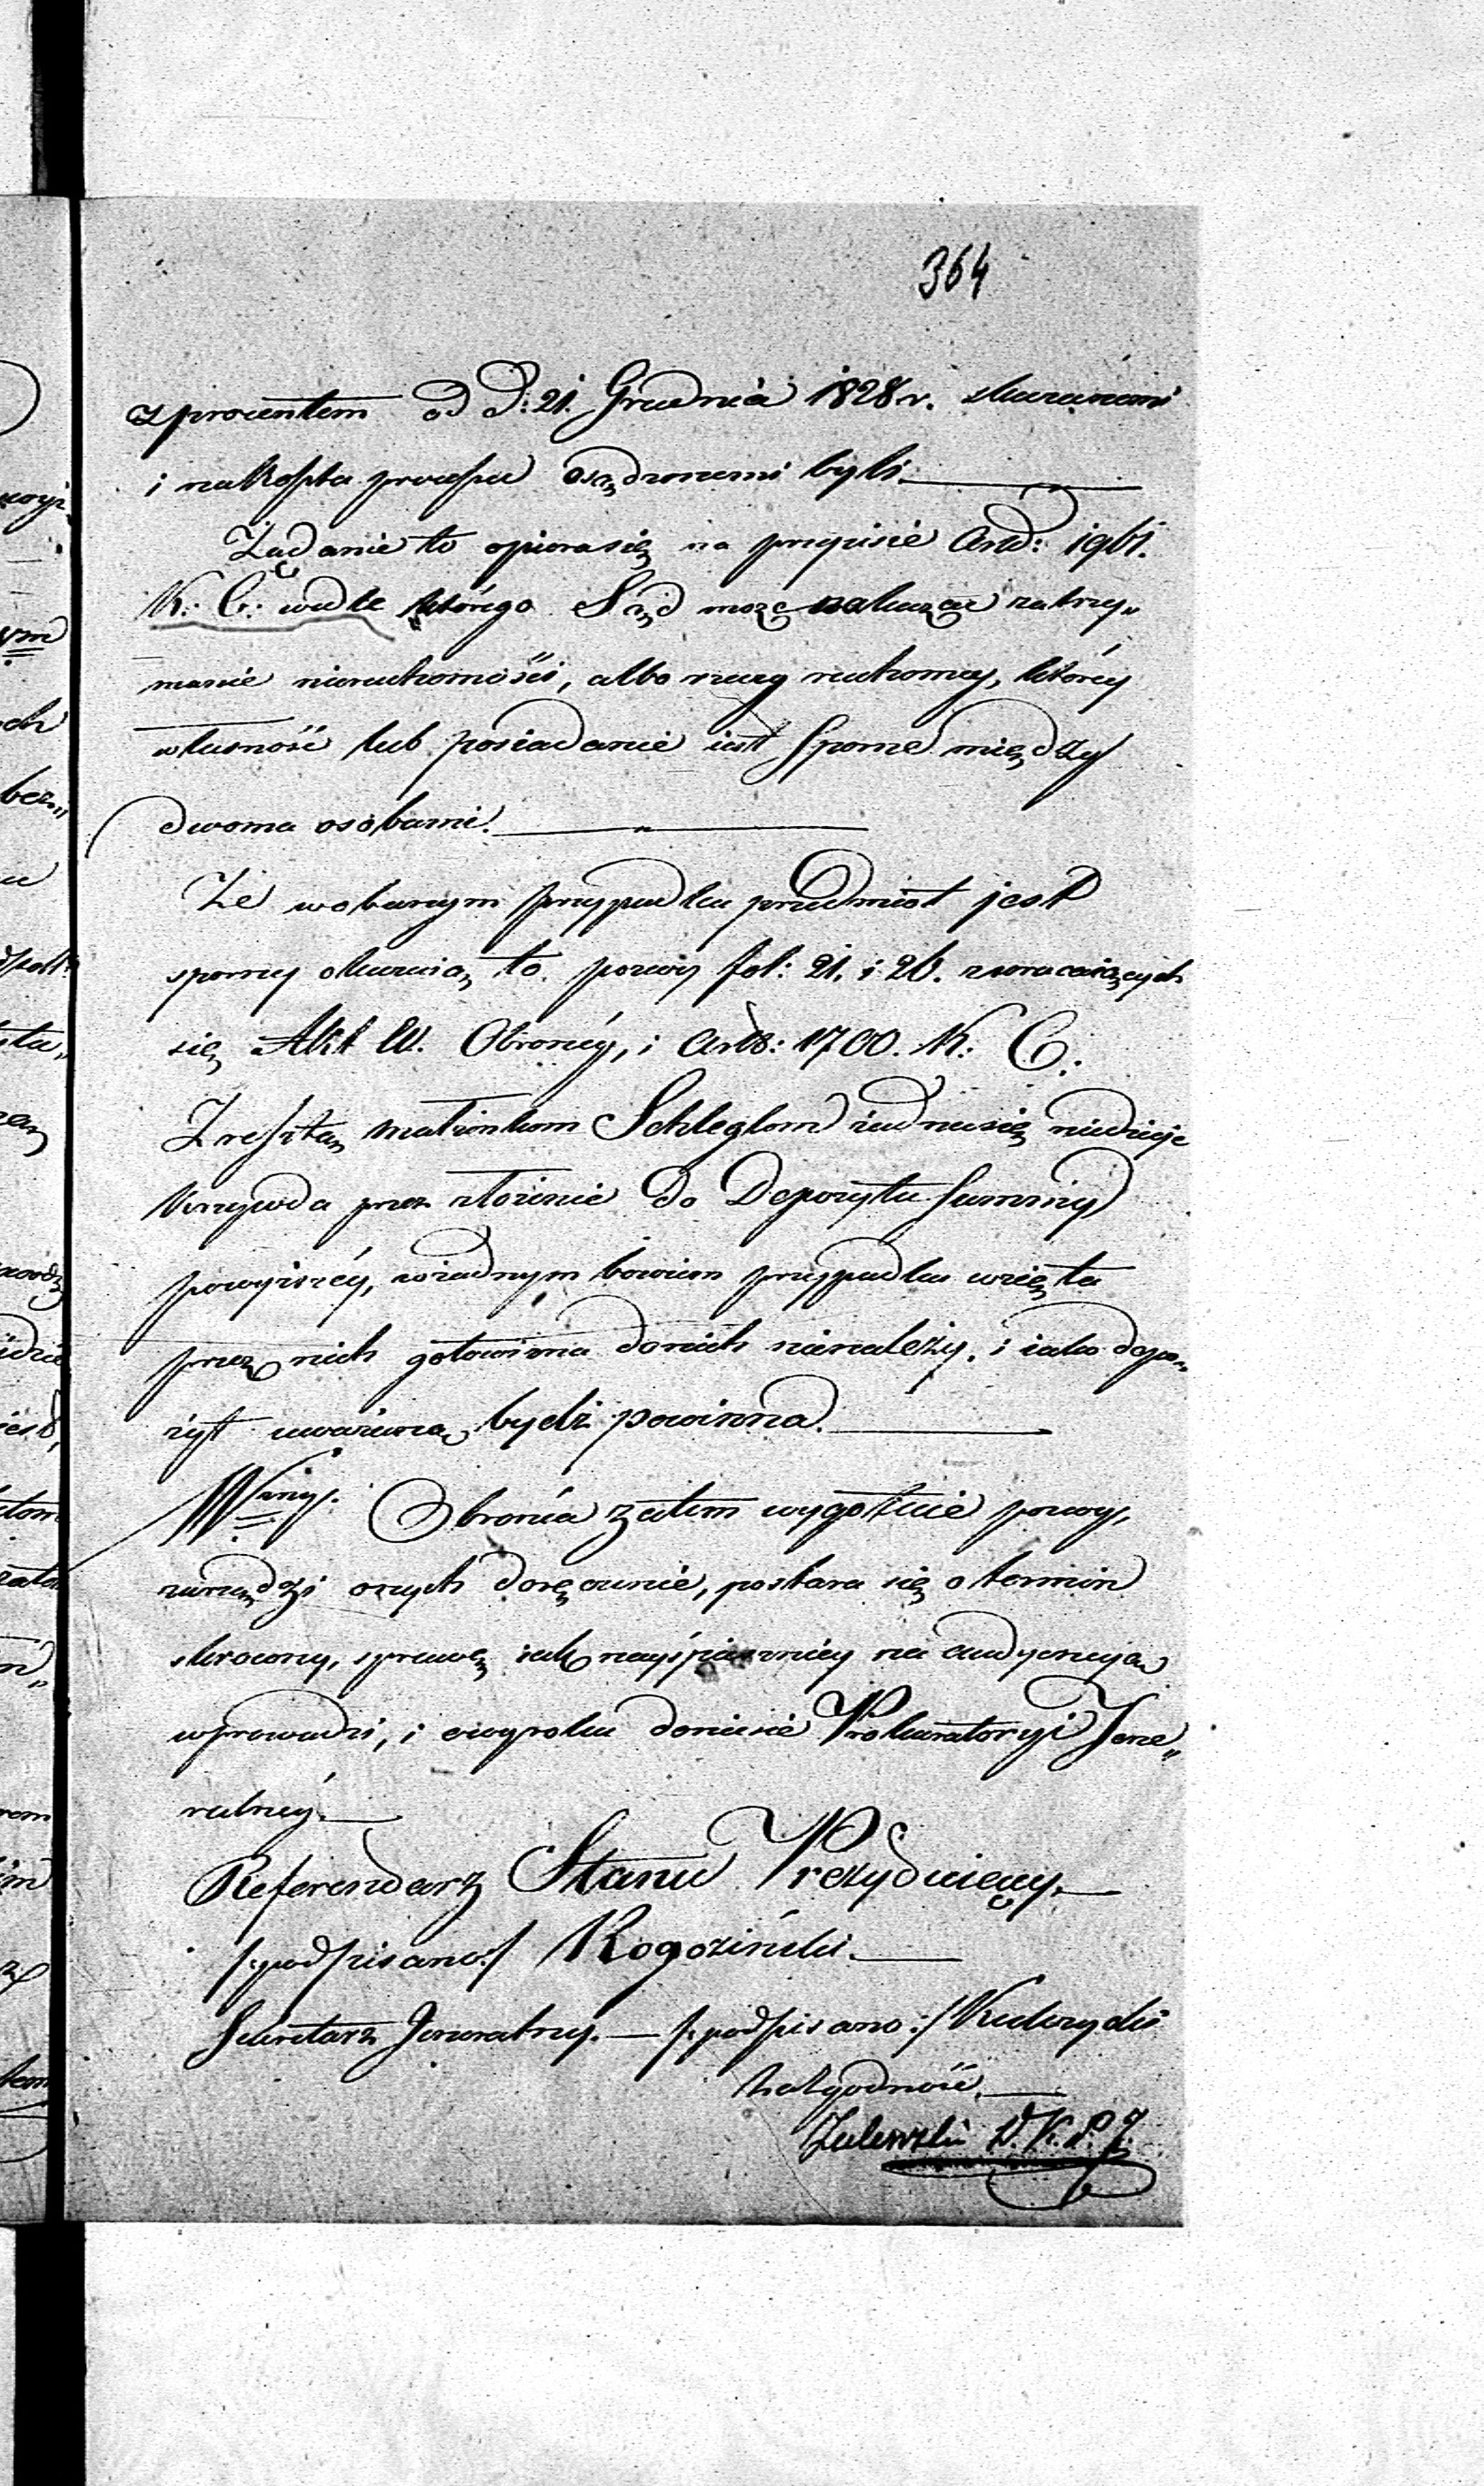 364
z procentem od D: 21. Grudnia 1828 r. skazanemi
i na koszta processu osądzonemi byli.
Żądanie to opiera się na przepisie Artt: 1961.
K: C: wedle którego Sąd może nakazać zatrzy„
manie nieruchomości, albo rzeczy ruchomey, którey
własność lub posiadanie iest sporne między
dwoma osobami.
Że w obecnym przypadku przedmiot jest
sporny okazuią to pozwy fol: 21. i 26. zwracaiących
się Akt W. Obrońcy, i Artt: 1700. K: C:
Zresztą małżonkom Schleglom żadna się niedzieje
krzywda przez złożenie do Depozytu Summy
powyższéy, w żadnym bowiem przypadku wzięta
przez nich gotowizna do nich nienależy, i iako depo„
zyt uważaną bydź powinna.
Wny. Obrońca zatem wygotuie pozwy,
zarządzi onych doręczenie, postara się o termin
skrócony, sprawę iak nayśpieszniey na audyencyą
wprowadzi, i o wyroku doniesie Prokuratoryi Jene„
ralnéy.
Referendarz Stanu Prezyduiący.
/:podpisano:/ Rogoziński.
Sekretarz Jeneralny. /:podpisano:/ Kulczycki
Za zgodność.
Zalewski D. K. P. J.